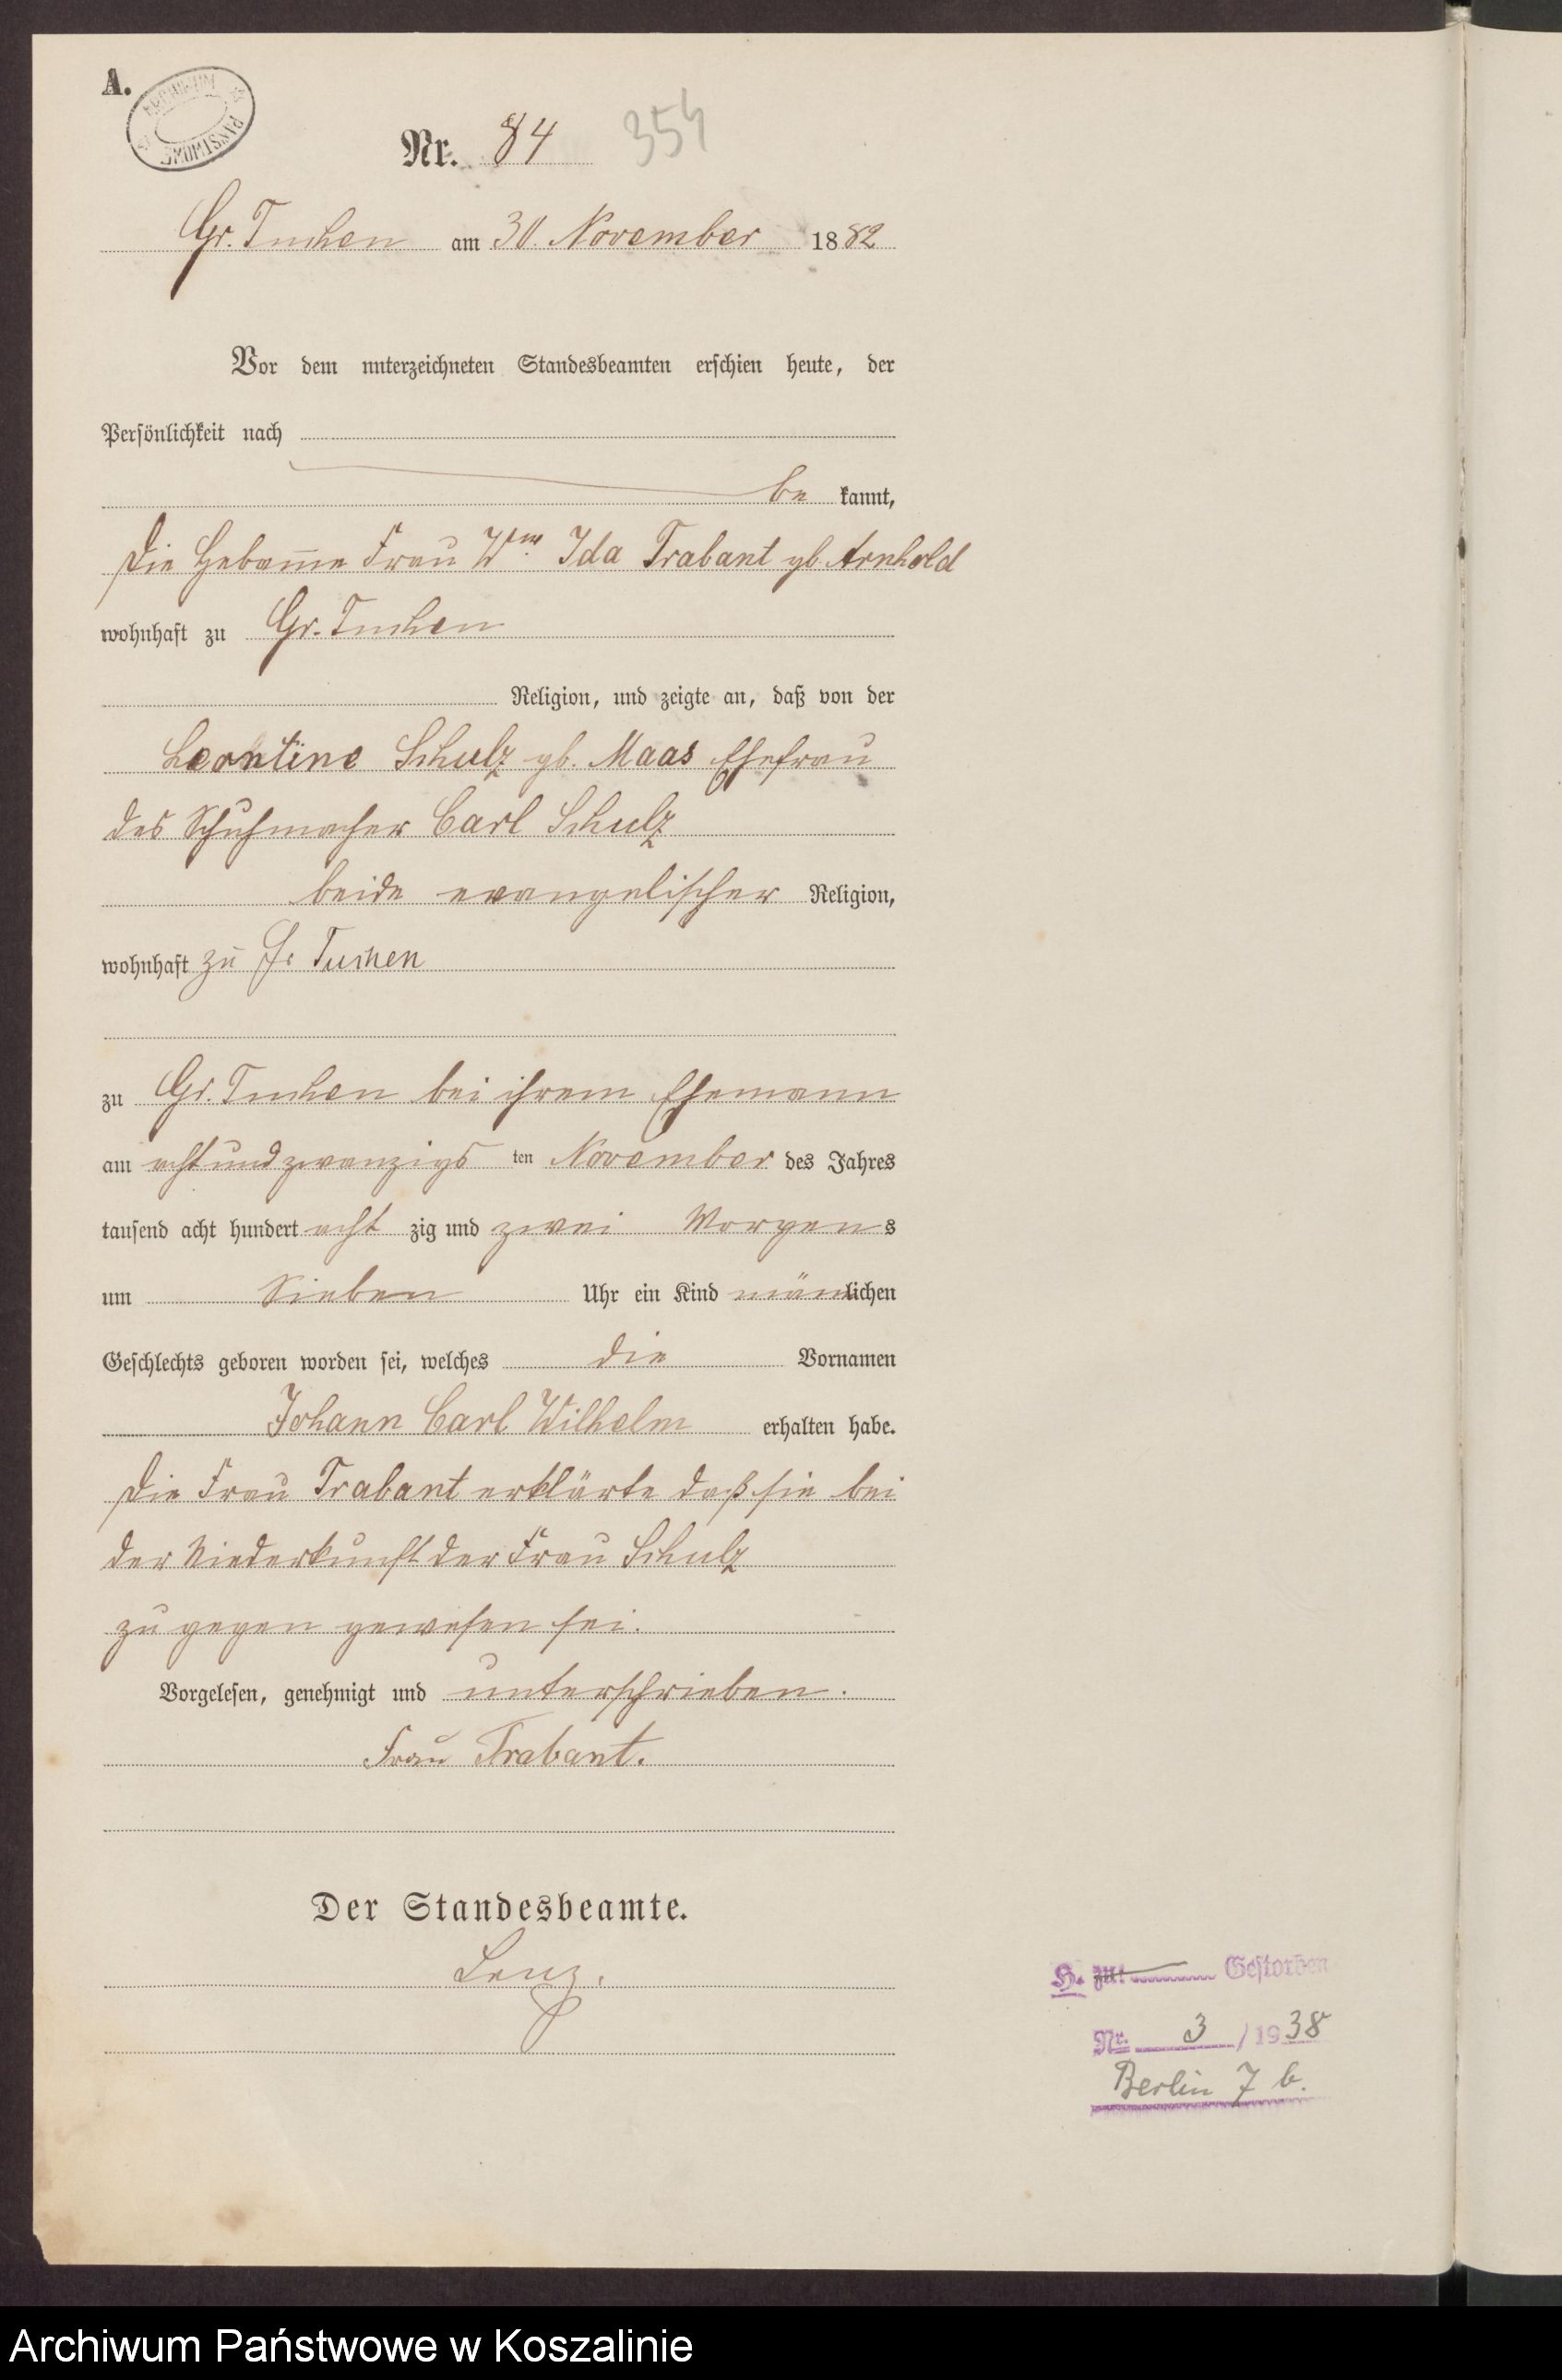 A.
ARCHIWUM PAŃSTWOWE
Nr. 84 354
Gr. Tuchen am 30. November 1882
Vor dem unterzeichneten Standesbeamten erschien heute, der
Persönlichkeit nach
be kannt,
die Hebamme Frau Wwe Ida Trabant gb. Arnhold
wohnhaft zu Gr. Tuchen
Religion, und zeigte an, daß von der
Leontine Schulz gb. Maas Ehefrau
des Schuhmacher Carl Schulz
beide evangelischer Religion,
wohnhaft zu Gr. Tuchen
zu Gr. Tuchen bei ihrem Ehemann
am achtundzwanzigs ten November des Jahres
tausend acht hundert acht zig und zwei Morgens
um Sieben Uhr ein Kind mänlichen
Geschlechts geboren worden sei, welches die Vornamen
Johann Carl Wilhelm erhalten habe.
Die Frau Trabant erklärte daß sie bei
der Niederkunft der Frau Schulz
zu gegen gewesen sei.
Vorgelesen, genehmigt und unterschrieben.
Frau Trabant.
Der Standesbeamte.
Lenz.
H. zu: Gestorben
Nr. 3 / 1938
Berlin 7 b.
Archiwum Państwowe w Koszalinie